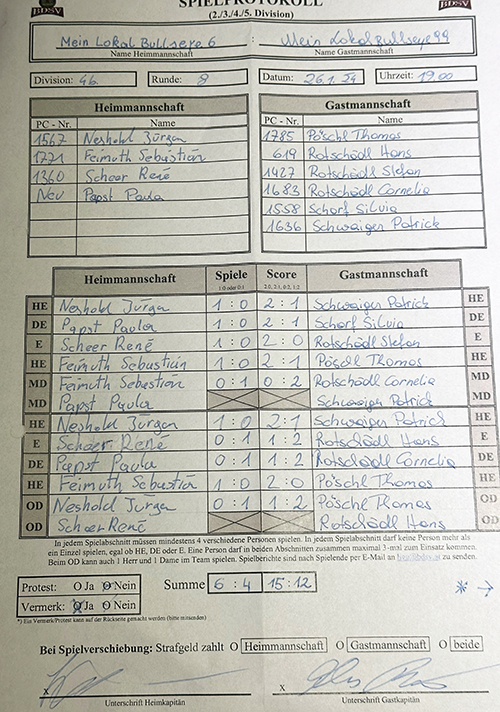 BDSV SPIELPROTOKOLL BDSV
(2./3./4./5. Division)
Mein Lokal Bullseye 6 : Mein Lokal Bullseye 99
Name Heimmannschaft Name Gastmannschaft
Division: 4b. Runde: 8 Datum: 26.1.24 Uhrzeit: 19.00
Heimmannschaft Gastmannschaft
PC - Nr. Name PC - Nr. Name
1567 Neshold Jürgen 1785 Pöschl Thomas
1771 Feimuth Sebastian 619 Rotschädl Hans
1360 Scheer René 1427 Rotschädl Stefan
Neu Papst Paula 1683 Rotschädl Cornelia
1558 Scharf Silvia
1636 Schwaiger Patrick
Heimmannschaft Spiele Score Gastmannschaft
1:0 oder 0:1 2:0, 2:1, 0:2, 1:2
HE Neshold Jürgen 1:0 2:1 Schwaiger Patrick HE
DE Papst Paula 1:0 2:1 Scharf Silvia DE
E Scheer René 1:0 2:0 Rotschädl Stefan E
HE Feimuth Sebastian 1:0 2:1 Pöschl Thomas HE
MD Feimuth Sebastian 0:1 0:2 Rotschädl Cornelia MD
MD Papst Paula Schwaiger Patrick MD
HE Neshold Jürgen 1:0 2:1 Schwaiger Patrick HE
E Scheer René 0:1 1:2 Rotschädl Hans E
DE Papst Paula 0:1 1:2 Rotschädl Cornelia DE
HE Feimuth Sebastian 1:0 2:0 Pöschl Thomas HE
OD Neshold Jürgen 0:1 1:2 Pöschl Thomas OD
OD Scheer René Rotschädl Hans OD
In jedem Spielabschnitt müssen mindestens 4 verschiedene Personen spielen. In jedem Spielabschnitt darf keine Person mehr als
ein Einzel spielen, egal ob HE, DE oder E. Eine Person darf in beiden Abschnitten zusammen maximal 3-mal zum Einsatz kommen.
Beim OD kann auch 1 Herr und 1 Dame im Team spielen. Spielberichte sind nach Spielende per E-Mail an zu senden.
Protest: O Ja O Nein Summe 6:4 15:12
Vermerk: O Ja O Nein
*) Ein Vermerk/Protest kann auf der Rückseite gemacht werden (bitte mitsenden)
Bei Spielverschiebung: Strafgeld zahlt O Heimmannschaft O Gastmannschaft O beide
X X
Unterschrift Heimkapitän Unterschrift Gastkapitän